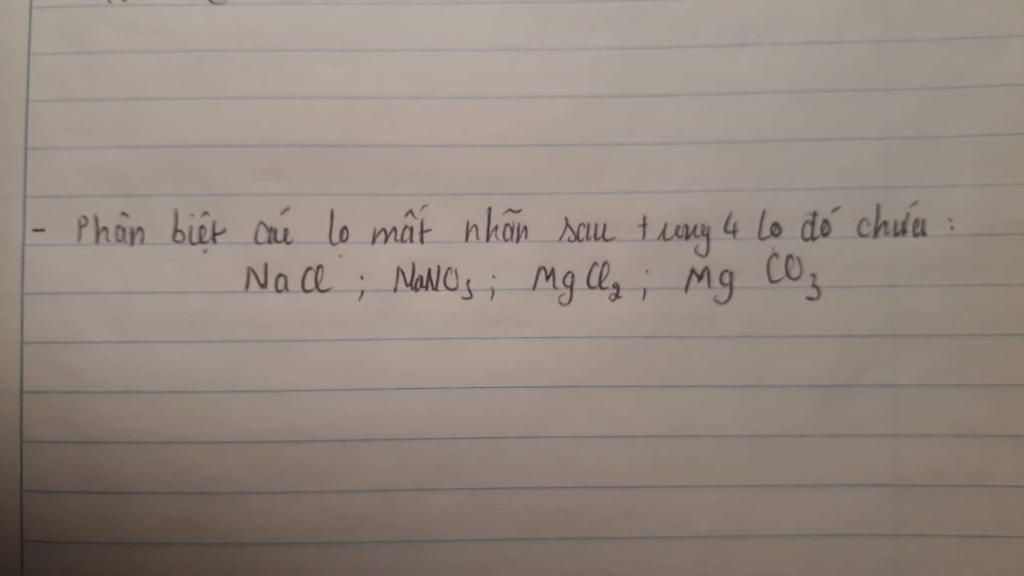 - Phân biệt các lọ mất nhãn sau trong 4 lọ đó chứa :
NaCl ; NaNO₃ ; MgCl₂ ; MgCO₃